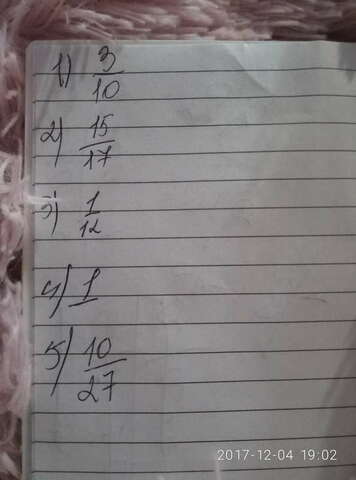 1) 3/10
2) 15/17
3) 1/12
4) 1
5) 10/27
2017-12-04 19:02